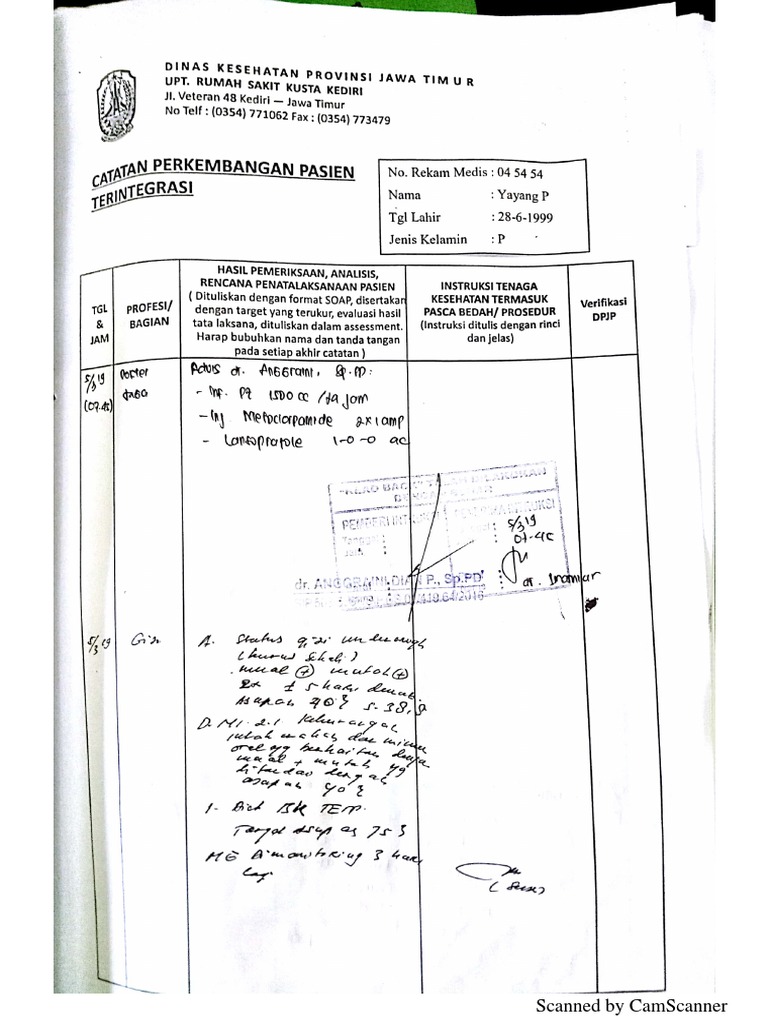 DINAS KESEHATAN PROVINSI JAWA TIMUR
UPT. RUMAH SAKIT KUSTA KEDIRI
Jl. Veteran 48 Kediri — Jawa Timur
No Telf : (0354) 771062 Fax : (0354) 773479
CATATAN PERKEMBANGAN PASIEN
TERINTEGRASI
No. Rekam Medis : 04 54 54
Nama : Yayang P
Tgl Lahir : 28-6-1999
Jenis Kelamin : P
TGL
&
JAM
PROFESI/
BAGIAN
HASIL PEMERIKSAAN, ANALISIS,
RENCANA PENATALAKSANAAN PASIEN
( Dituliskan dengan format SOAP, disertakan
dengan target yang terukur, evaluasi hasil
tata laksana, dituliskan dalam assessment.
Harap bubuhkan nama dan tanda tangan
pada setiap akhir catatan )
INSTRUKSI TENAGA
KESEHATAN TERMASUK
PASCA BEDAH/ PROSEDUR
(Instruksi ditulis dengan rinci
dan jelas)
Verifikasi
DPJP
5/3 19
Advis dr. Anggraini, Sp.PD:
- Inf. PZ 1500 cc /24 jam
- Inj Metoclopramide 2x1 amp
- Lansoprazole 1-0-0 ac
PEMBERI INSTRUKSI
5/3 19
dr. ANGGRAINI DIAN P., Sp.PD
5/3 19 Gizi
A. Status gizi
(kurus sekali)
mual (+) muntah (+)
± 5 hari
asupan 40%
D. NI. 2.1 Kekurangan
intake makan dan minum
oral yg berkaitan dengan
mual + muntah yg
ditandai dengan
asupan 40%
I. Diet BK TKTP.
Target asup 75%
ME Dimonitoring 3 hari
lagi
Scanned by CamScanner